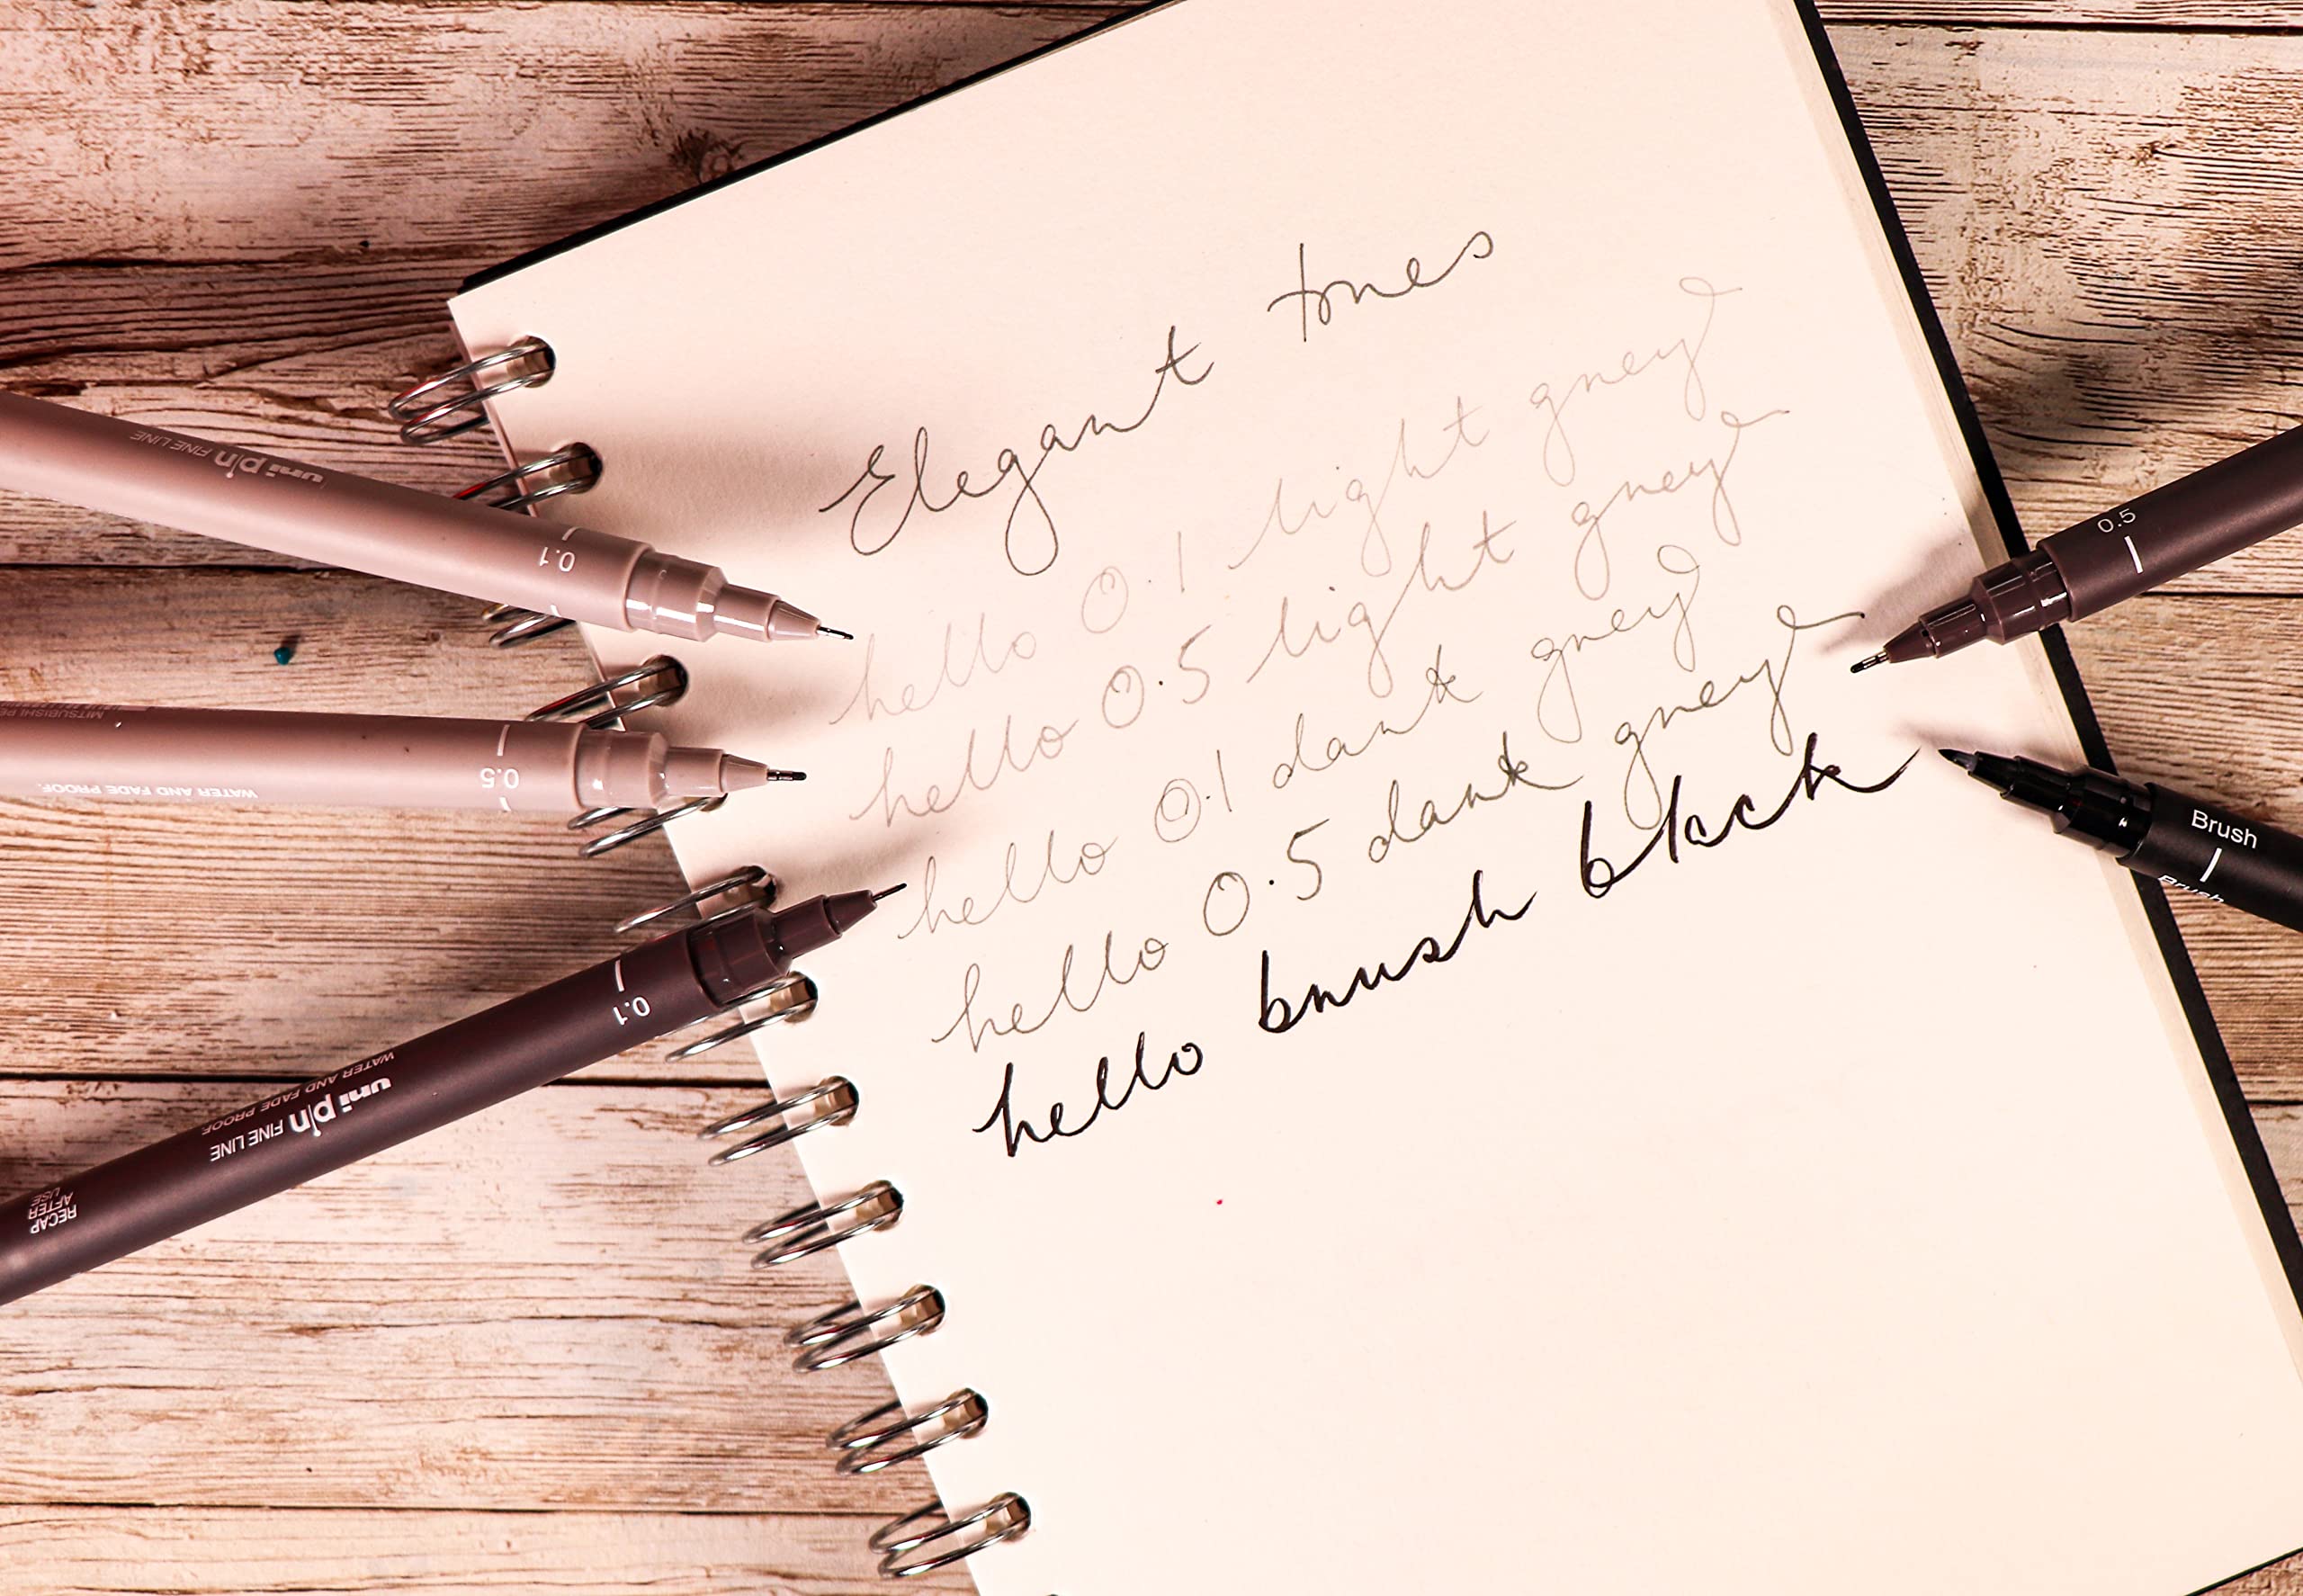 Elegant tones
hello 0.1 light grey
hello 0.5 light grey
hello 0.1 dark grey
hello 0.5 dark grey
hello brush black
uni pin FINE LINE
0.1
0.5
WATER AND FADE PROOF.
0.1
uni pin FINE LINE
WATER AND FADE PROOF.
RECAP
AFTER
USE
0.5
Brush
Brush